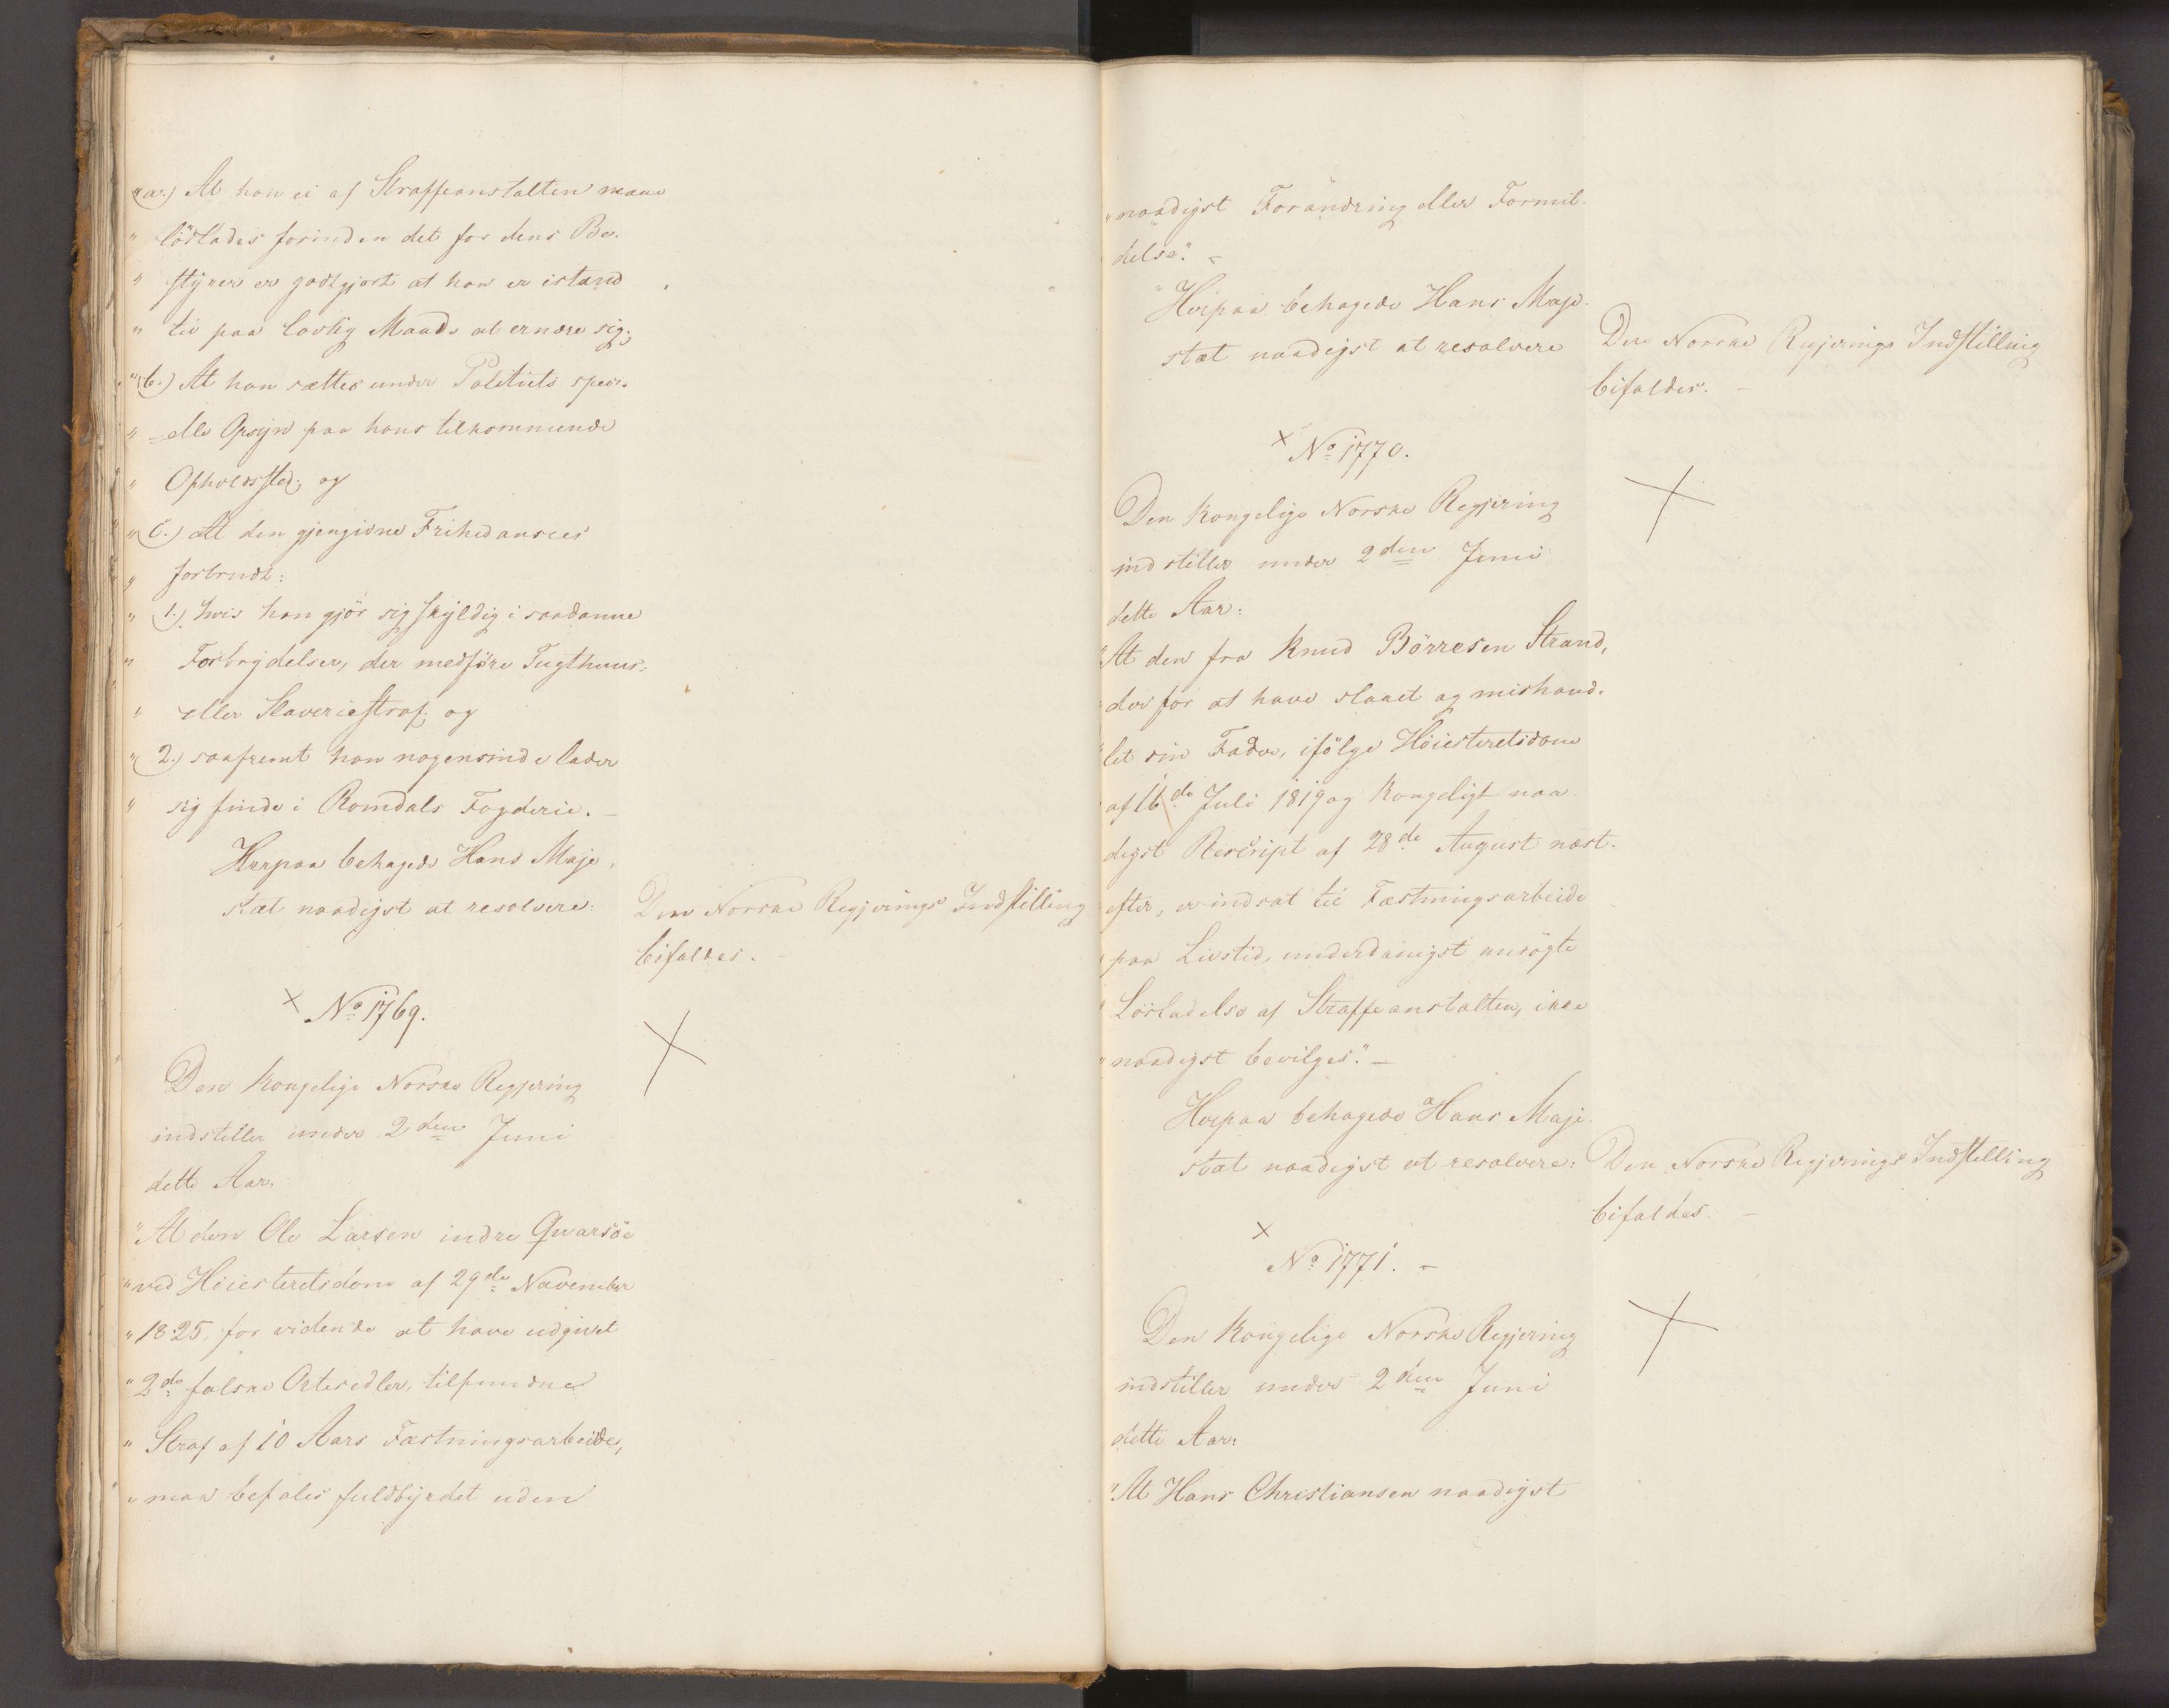 "a.) At han ei af Straffeanstalten maae
" löslades forinden det for dens Be-
" styrer er godtgjort at han er istand
" til paa lovlig Maade at ernære sig;
"b.) At han sættes under Politiets speci-
" elle Opsyn paa hans tilkommende
" Opholdssted; og
"c.) At den gjengivne Frihed ansees
" forbrudt:
" 1.) hvis han gjör sig skyldig i saadanne
" Forbrydelser, der medföre Tugthuus-
" eller Slaveriestraf; og
" 2.) saafremt han nogensinde lader
" sig finde i Romdals Fogderie. —
Herpaa behagede Hans Maje-
stæt naadigst at resolvere:
Den Norske Regjerings Indstilling
bifaldes. —
× No 1769.
Den Kongelige Norske Regjering
indstiller under 2den Juni
dette Aar:
"At den Ole Larsen indre Qvarsöe
"ved Höiesteretsdom af 29de November
"1825, for vidende at have udgivet
"2de falske Ortsedler, tilfundne
" Straf af 10 Aars Fæstningsarbeide,
" maa befales fuldbyrdet uden
"naadigst Forandring eller Formil-
delse". —
Herpaa behagede Hans Maje-
stæt naadigst at resolvere
Den Norske Regjerings Indstilling
bifaldes. —
× No 1770.
Den Kongelige Norske Regjering
indstiller under 2den Juni
dette Aar:
"At den fra Knud Börresen Strand,
"der for at have slaaet og mishand-
"let sin Fader, ifölge Höiesteretsdom
"af 16de Juli 1819 og Kongeligt naa-
digst Rescript af 28de August næst-
efter, er indsat til Fæstningsarbeide
"paa Livstid, underdanigst ansögte
"Lösladelse af Straffeanstalten, ikke
"naadigst bevilges". —
Herpaa behagede Hans Maje-
stæt naadigst at resolvere:
Den Norske Regjerings Indstilling
bifaldes. —
× No 1771. —
Den Kongelige Norske Regjering
indstiller under 2den Juni
dette Aar:
"At Hans Christiansen naadigst